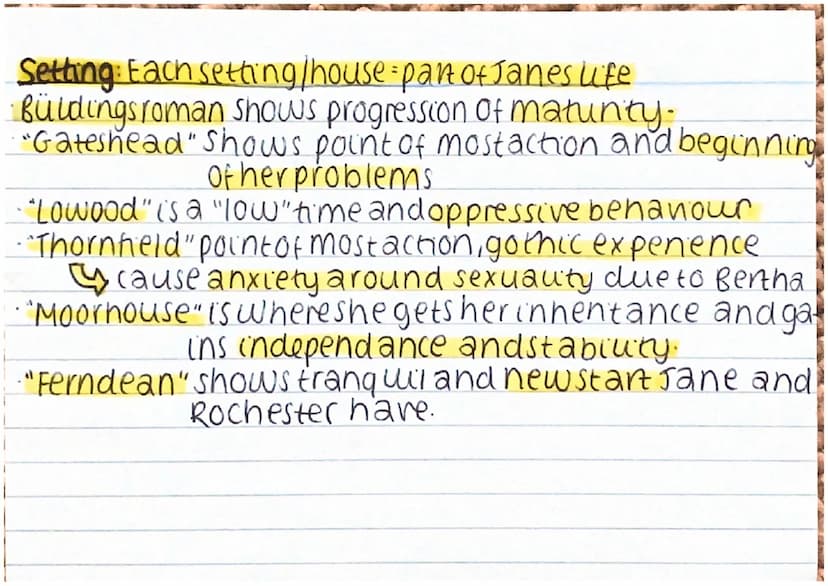 Setting: Each setting/house = part of Janes life
· Büildingsroman shows progression of maturity.
· "Gateshead" shows point of most action and beginning
of her problems
· "Lowood" is a "low" time and oppressive behaviour
· "Thornfield" point of most action, gothic experience
cause anxiety around sexuality due to Bertha
· "Moorhouse" is where she gets her inheritance and ga-
ins independance and stability.
· "Ferndean" shows tranquil and new start Jane and
Rochester have.